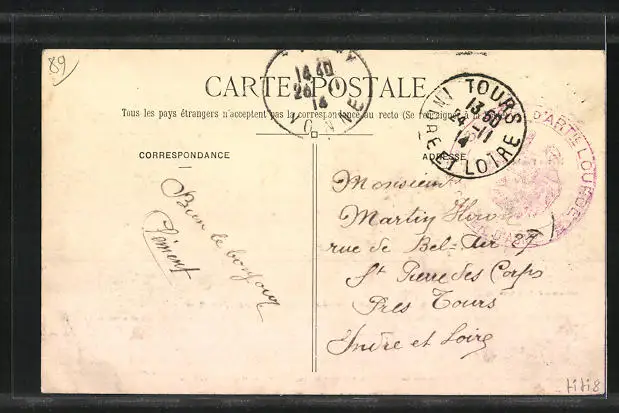 89
CARTE POSTALE
Tous les pays étrangers n'acceptent pas la correspondance au recto (Se renseigner à la
CORRESPONDANCE
ADRESSE
14 40
14
YONNE
TOURS
13 30
24 -11
14
INDRE ET LOIRE
D'ARTIE LOURDE
Bien le bonjour
Clément
Monsieur
Martin
rue de Bel-Air 27
St Pierre des Corps
Près Tours
Indre et Loire